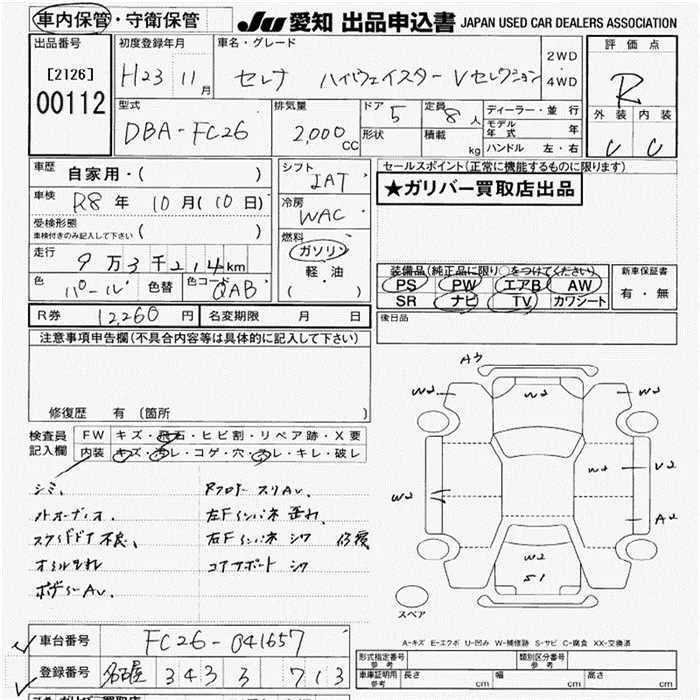 車内保管・守衛保管
JU 愛知 出品申込書 JAPAN USED CAR DEALERS ASSOCIATION
出品番号
[2126]
00112
初度登録年月
H23 11月
車名・グレード
セレナ ハイウェイスター Vセレクション
2WD・4WD
評価点
R
外装 内装
C C
型式
DBA-FC26
排気量
2,000cc
ドア 5
形状
定員 8人
積載 kg
ディーラー・並行
モデル年式 年
ハンドル 左・右
車歴 自家用・( )
車検 R8年 10月(10日)
受検形態
車検付きのみ記入して下さい ( )
走行 9万3千214km
色 パール 色替 色コード QAB
シフト
IAT
冷房
WAC
燃料
ガソリン
軽・油
( ・ )
セールスポイント(正常に機能するものに限ります)
★ガリバー買取店出品
装備品(純正品に限り○をつけてください)
PS PW エアB AW
SR ナビ TV カワシート
新車保証書
有・無
R券 12,260円 名変期限 月 日
後日品
注意事項申告欄(不具合内容等は具体的に記入して下さい)
修復歴 有(箇所 )
検査員記入欄
FW キズ・飛石・ヒビ割・リペア跡・X要
内装 キズ・汚レ・コゲ・穴・スレ・キレ・破レ
シミ、
ボデーAV.
左Fインパネ
右Fインパネ シワ 修復
コアサポート シワ
A3
W2 W2 W2
W2 W2 V2
A2
W2
S1
スペア
A-キズ E-エクボ U-凹み W-補修跡 S-サビ C-腐食 XX-交換済
車台番号 FC26-041657
登録番号 名古屋 343 3 713
形式指定番号 参考
類別区分番号 参考
車庫証明用 参考 長さ cm 幅 cm 高さ cm